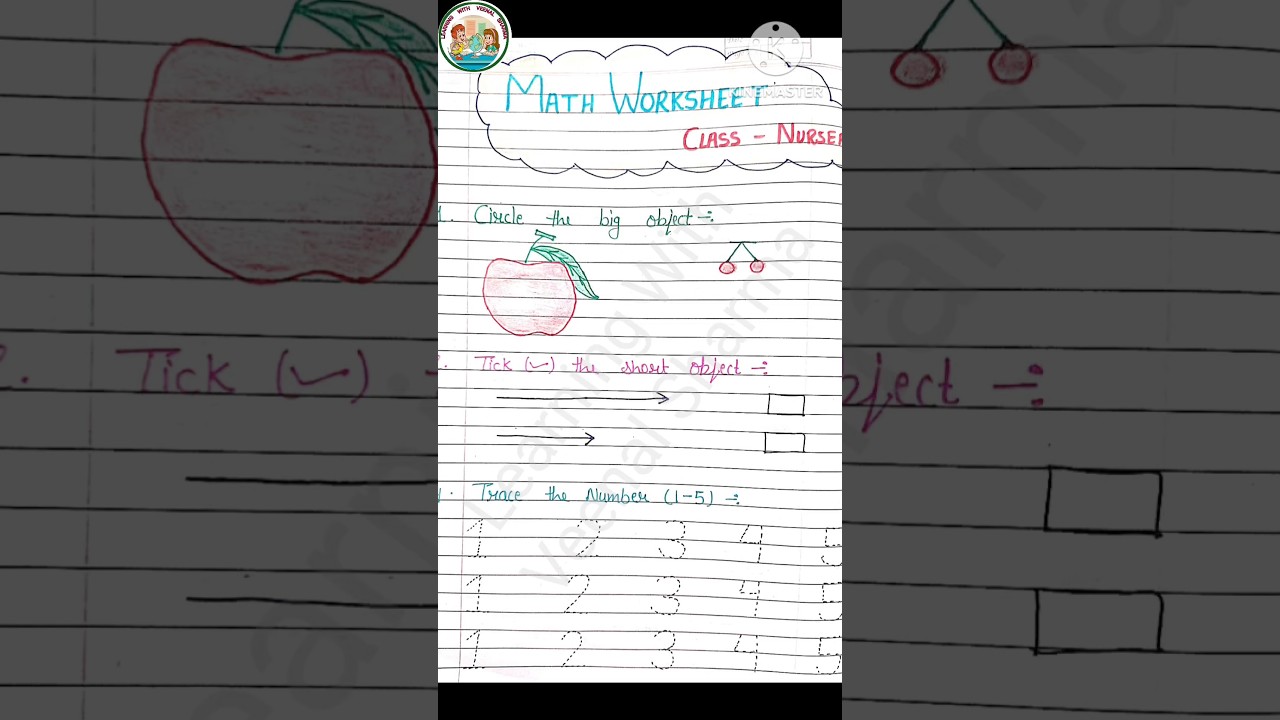 LEARNING WITH VEENAL SHARMA
K
KINEMASTER
MATH WORKSHEET
CLASS - NURSER
1. Circle the big object -:
2. Tick (✓) the short object -:
Trace the Number (1-5) -:
1 2 3 4 5
1 2 3 4 5
1 2 3 4 5
Learning With
Veenal Sharma
Tick (✓)
object -: